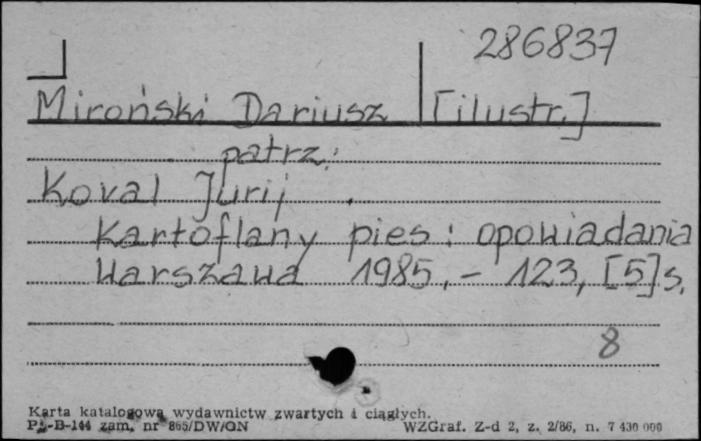 286837
Miroński Dariusz [ilustr.]
patrz:
Koval Jurij.
Kartoflany pies : opowiadania
Warszawa 1985. - 123, [5] s.
8
Karta katalogowa wydawnictw zwartych i ciągłych.
Pu-B-144 zam. nr 865/DW/ON WZGraf. Z-d 2, z. 2/86, n. 7 430 000